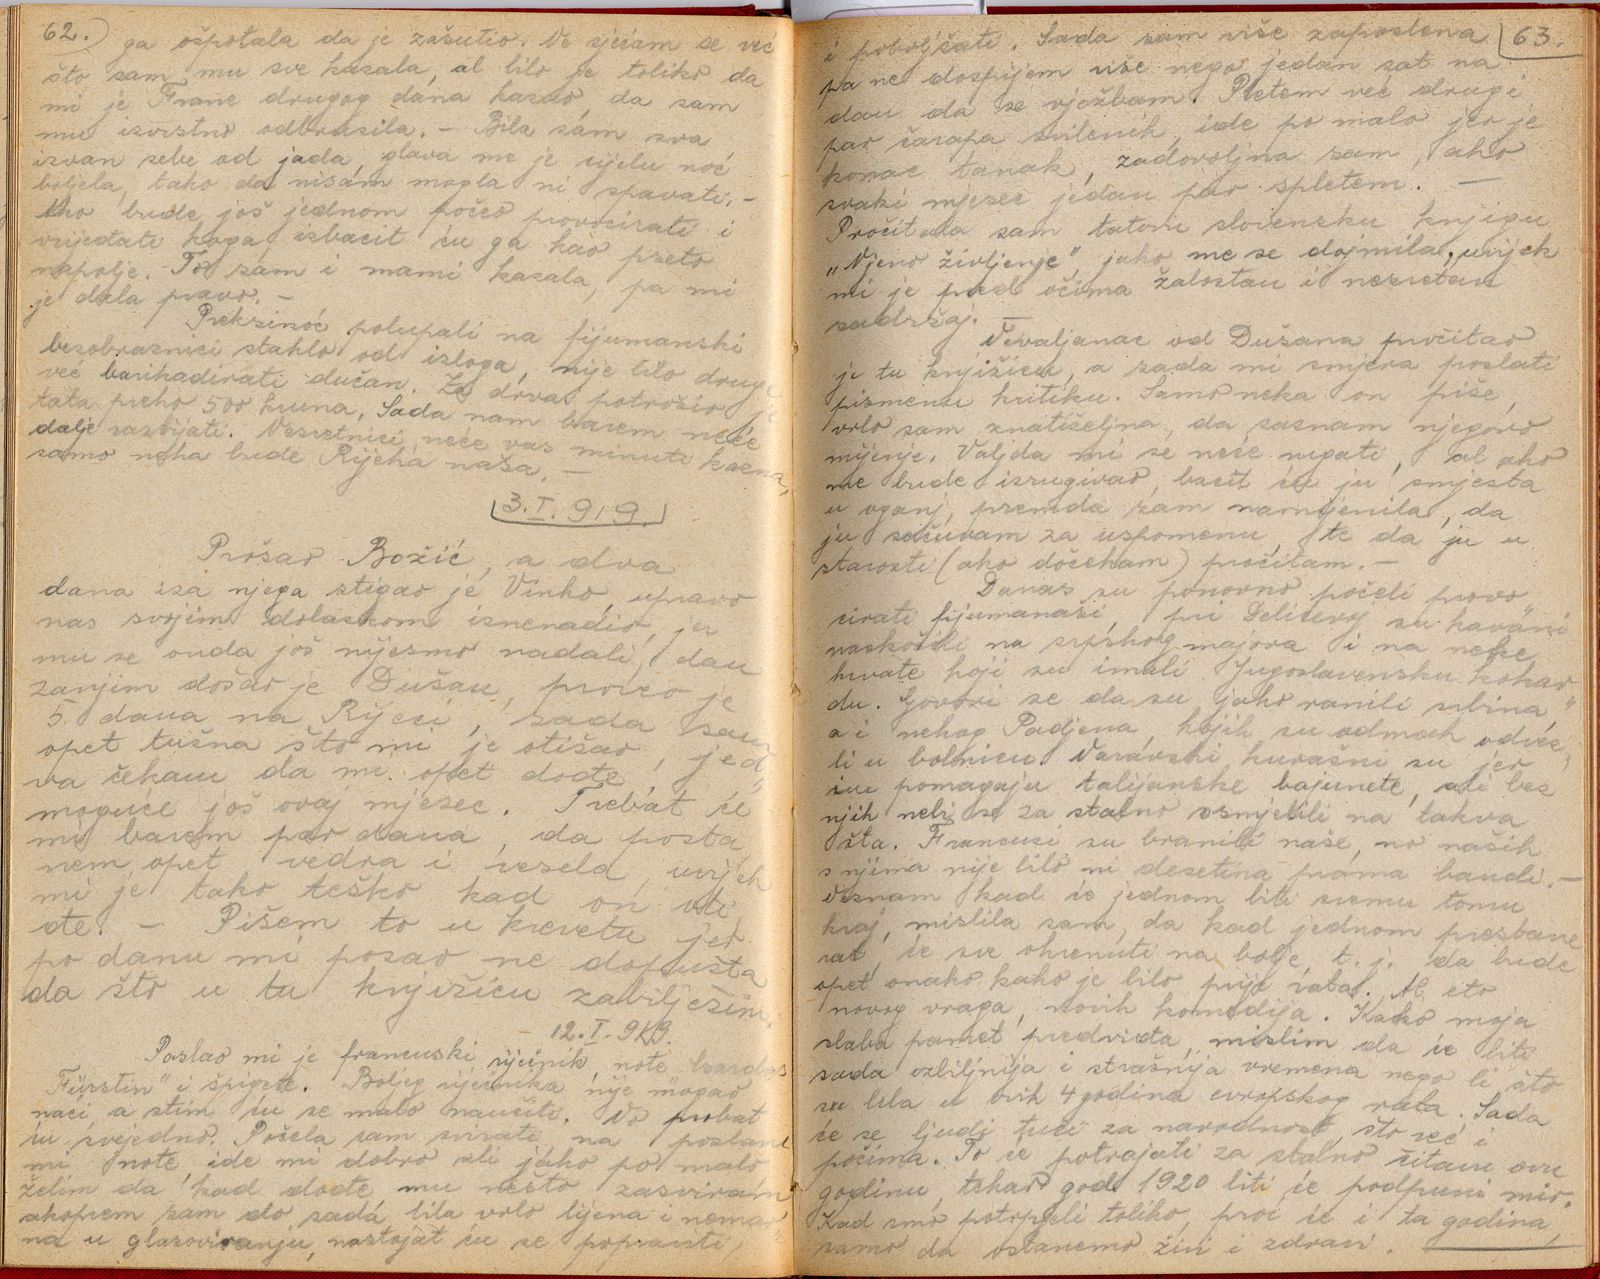 62.)
ga ošpotala da je zašutio. Ne sjećam se već
što sam mu sve kazala, al bilo je toliko da
mi je Frane drugog dana kazao, da sam
mu izvrstno odbrusila. – Bila sam sva
izvan sebe od jada, glava me je cijelu noć
boljela, tako da nisam mogla ni spavati. –
Ako bude još jednom počeo provocirati i
vrijeđati koga, izbacit ću ga kao pseto
napolje. To sam i mami kazala, pa mi
je dala pravo. –
Preksinoć polupali na fijumanski
bezobraznici staklo od izloga, nije bilo druge
već barikadirati dućan. Za drva potrošio je
tata preko 500 kruna. Sada nam barem neće
dalje razbijati. Nesretnici neće vas minuti kazna,
samo neka bude Rijeka naša. –
3. I. 919.
Prošao Božić, a dva
dana iza njega stigao je Vinko, upravo
nas svojim dolaskom iznenadio, jer
mu se onda još nijesmo nadali, dan
zanjim došao je Dušan, proveo je
5 dana na Rijeci, sada sam
opet tužna što mi je otišao, jed
va čekam da mi opet dođe,
moguće još ovaj mjesec. Trebat će
mi barem par dana, da posta
nem opet vedra i vesela, uvijek
mi je tako teško kad on oti
đe. – Pišem to u krevetu jer
po danu mi posao ne dopušta
da što u tu knjižicu zabilježim.
12. I. 919.
Poslao mi je francuski rječnik, note
Fürstin" i špigete. Boljeg rječnika nije mogao
naći a stim ću se malo naučiti. No probat
ću svejedno. Počela sam svirati na poslane
mi note, ide mi dobro ali jako po malo
želim da kad dođe mu nešto zasviram
akoprem sam do sada bila vrlo lijena i nemar
na u glasoviranju, nastojat ću se popraviti,
63.
i poboljšati. Sada sam više zaposlena
pa ne dospijem više nego jedan sat na
dan da se vježbam. Pletem već drugi
par čarapa svilenih, ide po malo jer je
konac tanak, zadovoljna sam, ako
svaki mjesec jedan par spletem. –
Pročitala sam tatovu slovensku knjigu
„Njeno življenje" jako me se dojmila, uvijek
mi je pred očima žalostan i nesretan
sadržaj. –
Nevaljanac od Dušana pročitao
je tu knjižicu, a sada mi smjera poslati
pismenu kritiku. Samo neka on piše,
vrlo sam znatiželjna, da saznam njegovo
mijenje. Valjda mi se neće rugati, al ako
me bude izrugivao, bacit ću ju smjesta
u oganj, premda sam namijenila, da
ju sačuvam za uspomenu, te da ju u
starosti (ako dočekam) pročitam. –
Danas su ponovno počeli provo
cirati fijumanaši, pri Delićevoj su kavani
naskočili na srpskog majora i na neke
hrvate koji su imali Jugoslavensku kokar
du. Govori se da su jako ranili srbina,
a i nekog Padjena, kojih su odmah odvez
li u bolnicu. Naravski kurašni su jer
im pomagaju talijanske bajunete, ali bez
njih nebi se za stalno osmjelili na takva
šta. Francuzi su branili naše, no naših
s njima nije bilo ni desetina prama bandi. –
Neznam kad će jednom biti svemu tomu
kraj, mislila sam, da kad jednom prestane
rat, će sve okrenuti na bolje, t. j. da bude
opet onako kako je bilo prije rata. Al eto
novog vraga, novih komedija. Kako moja
slaba pamet predviđa, mislim da će biti
sada ozbiljnija i strašnija vremena nego li što
su bila u ovih 4 godina evropskog rata. Sada
će se ljudi tući za narodnost, što već i
počima. To će potrajati za stalno čitavu ovu
godinu, tekar god. 1920 biti će podpuni mir.
Kad smo potrpjeli toliko, proć će i ta godina,
samo da ostanemo živi i zdravi.